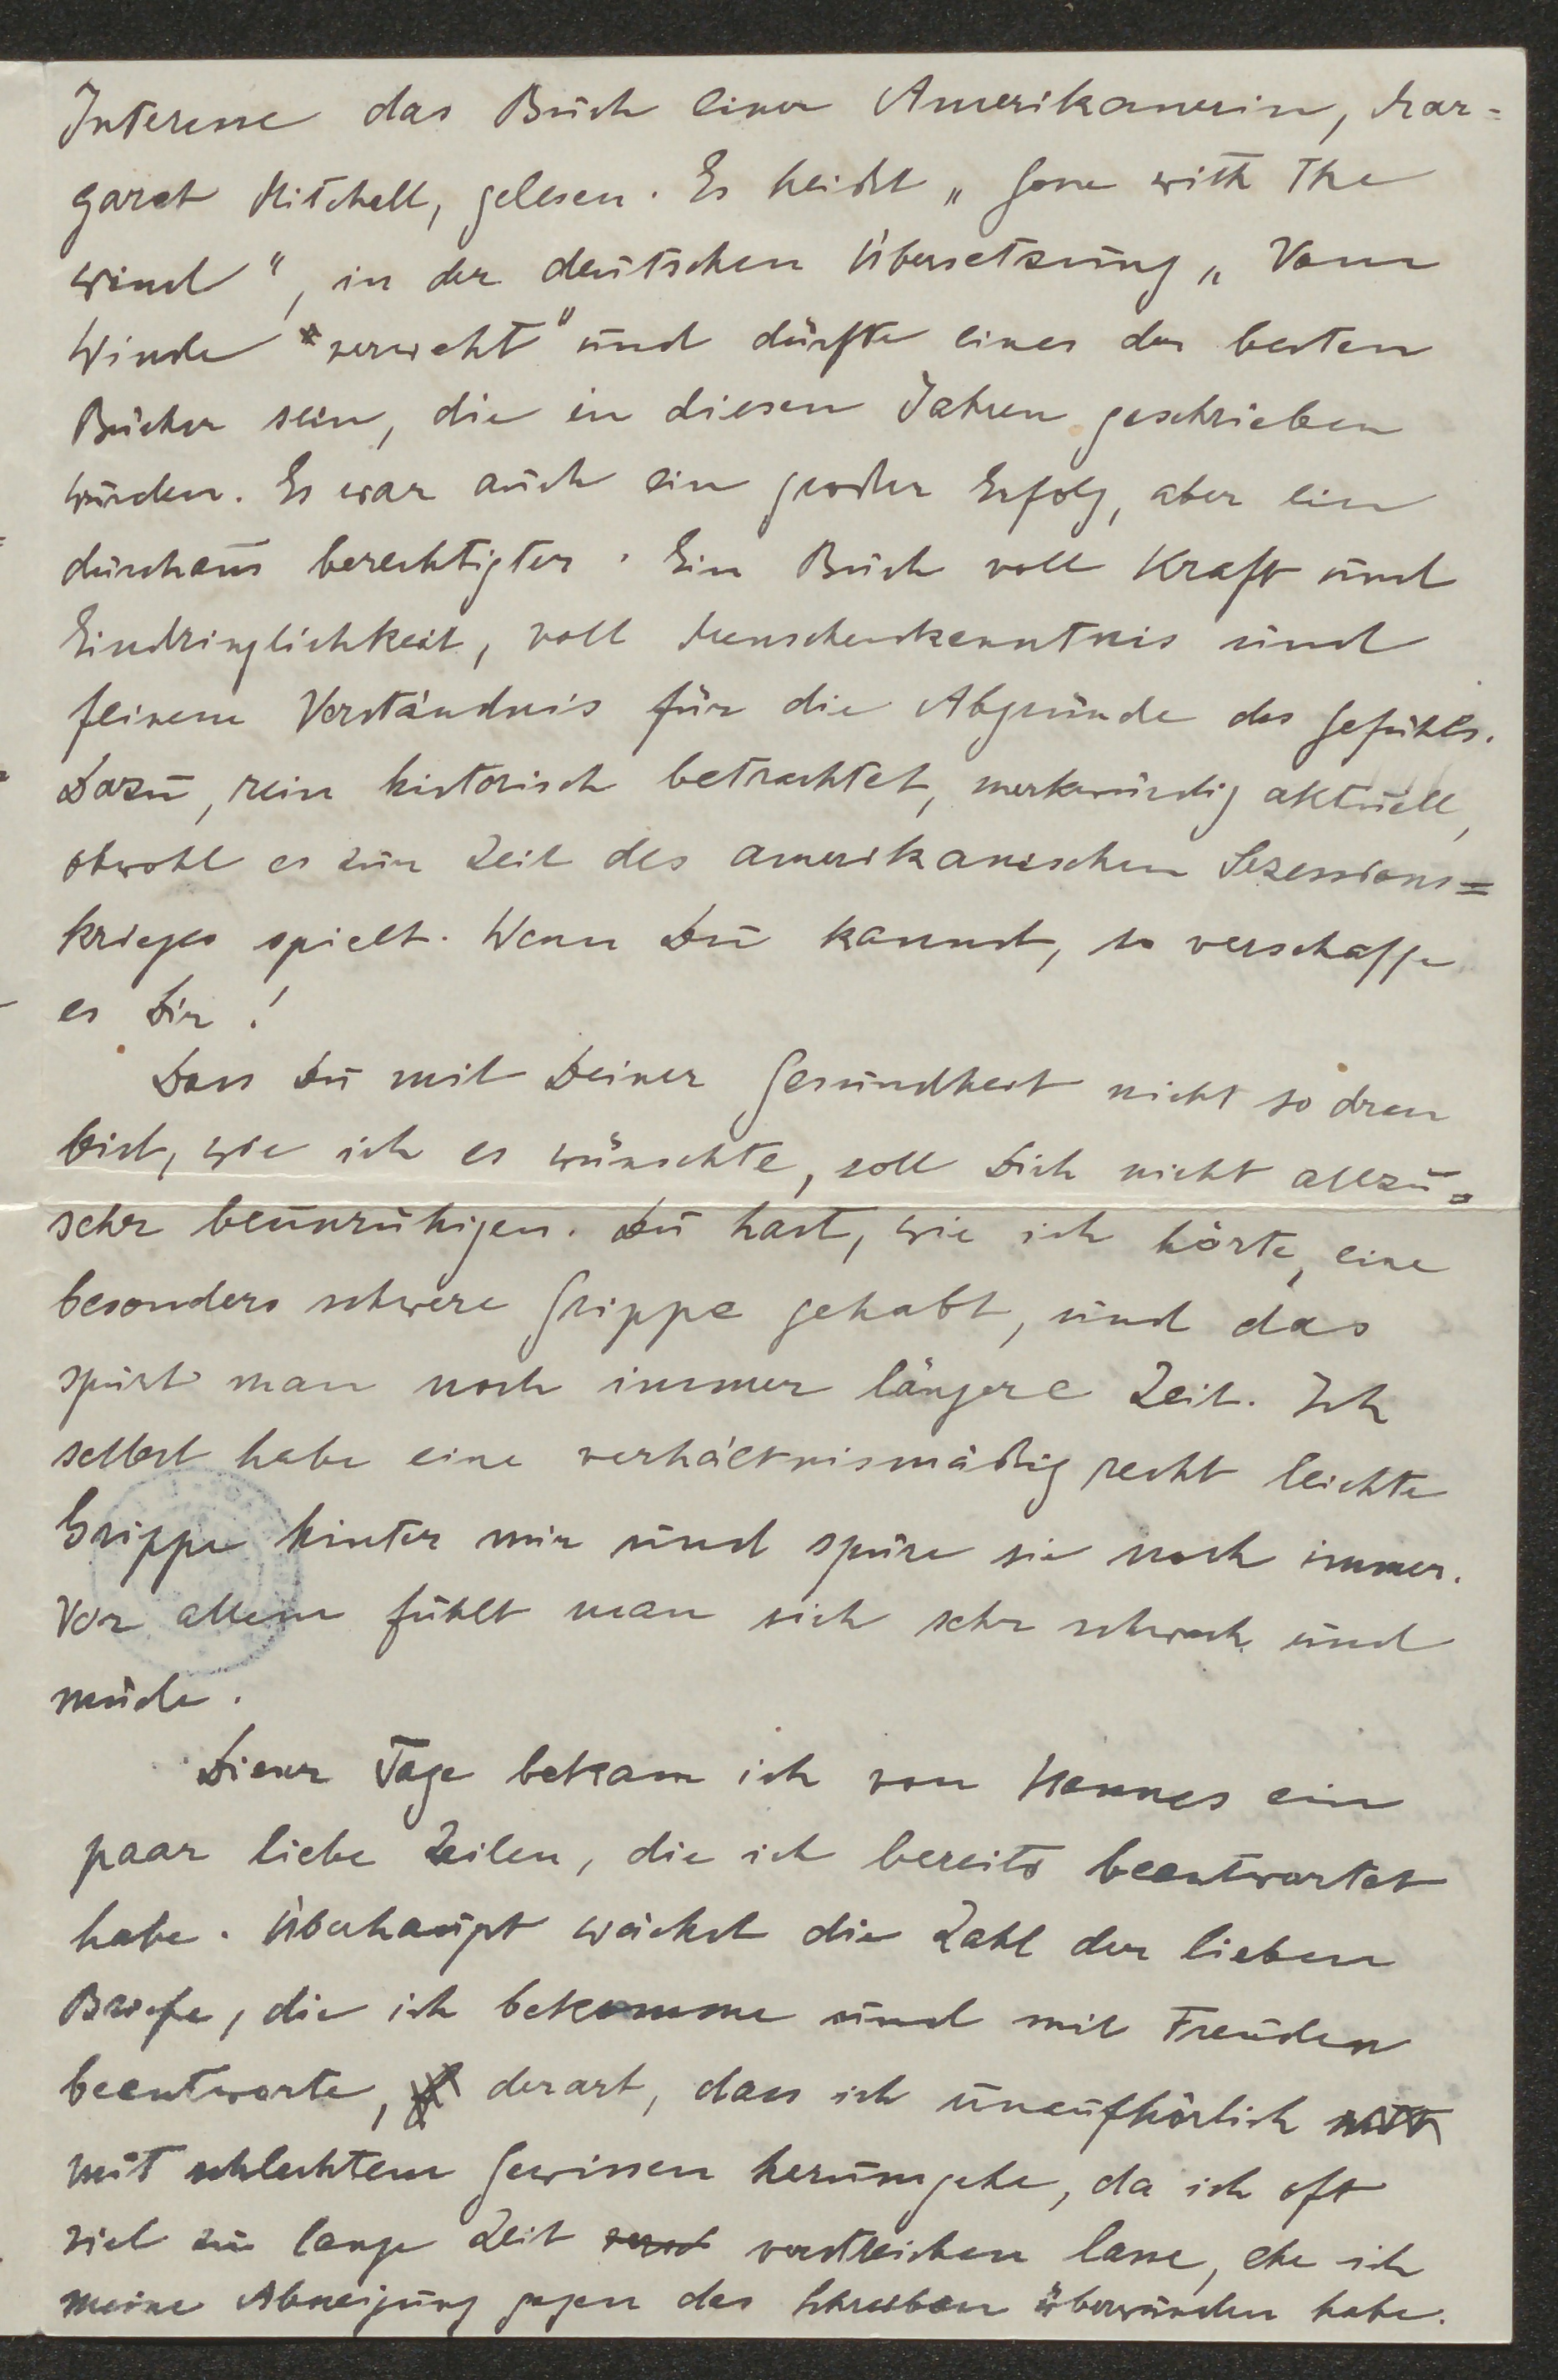 Interesse das Buch einer Amerikanerin, Mar=
garet Mitchell, gelesen. Es heißt „Gone with the
wind“, in der deutschen Übersetzung „Vom
Winde verweht“ und dürfte eines der besten
Bücher sein, die in diesen Jahren geschrieben
wurden. Es war auch ein großer Erfolg, aber ein
durchaus berechtigter. Ein Buch voll Kraft und
Eindringlichkeit, voll Menschenkenntnis und
feinem Verständnis für die Abgründe des Gefühls.
Dazu, rein historisch betrachtet, merkwürdig aktuell,
obwohl es zur Zeit des amerikanischen Sezessions=
krieges spielt. Wenn Du kannst, so verschaffe
es Dir!
Dass Du mit Deiner Gesundheit nicht so dran
bist, wie ich es wünschte, soll Dich nicht allzu=
sehr beunruhigen. Du hast, wie ich hörte, eine
besonders schwere Grippe gehabt, und das
spürt man noch immer längere Zeit. Ich
selbst habe eine verhältnismäßig recht leichte
Grippe hinter mir und spüre sie noch immer.
Vor allem fühlt man sich sehr schwach und
müde.
Dieser Tage bekam ich von Hannes ein
paar liebe Zeilen, die ich bereits beantwortet
habe. Überhaupt wächst die Zahl der lieben
Briefe, die ich bekomme und mit Freuden
beantworte, derart, dass ich unaufhörlich
mit schlechtem Gewissen herumgehe, da ich oft
viel zu lange Zeit verstreichen lasse, ehe ich
meine Abneigung gegen das Schreiben überwunden habe.